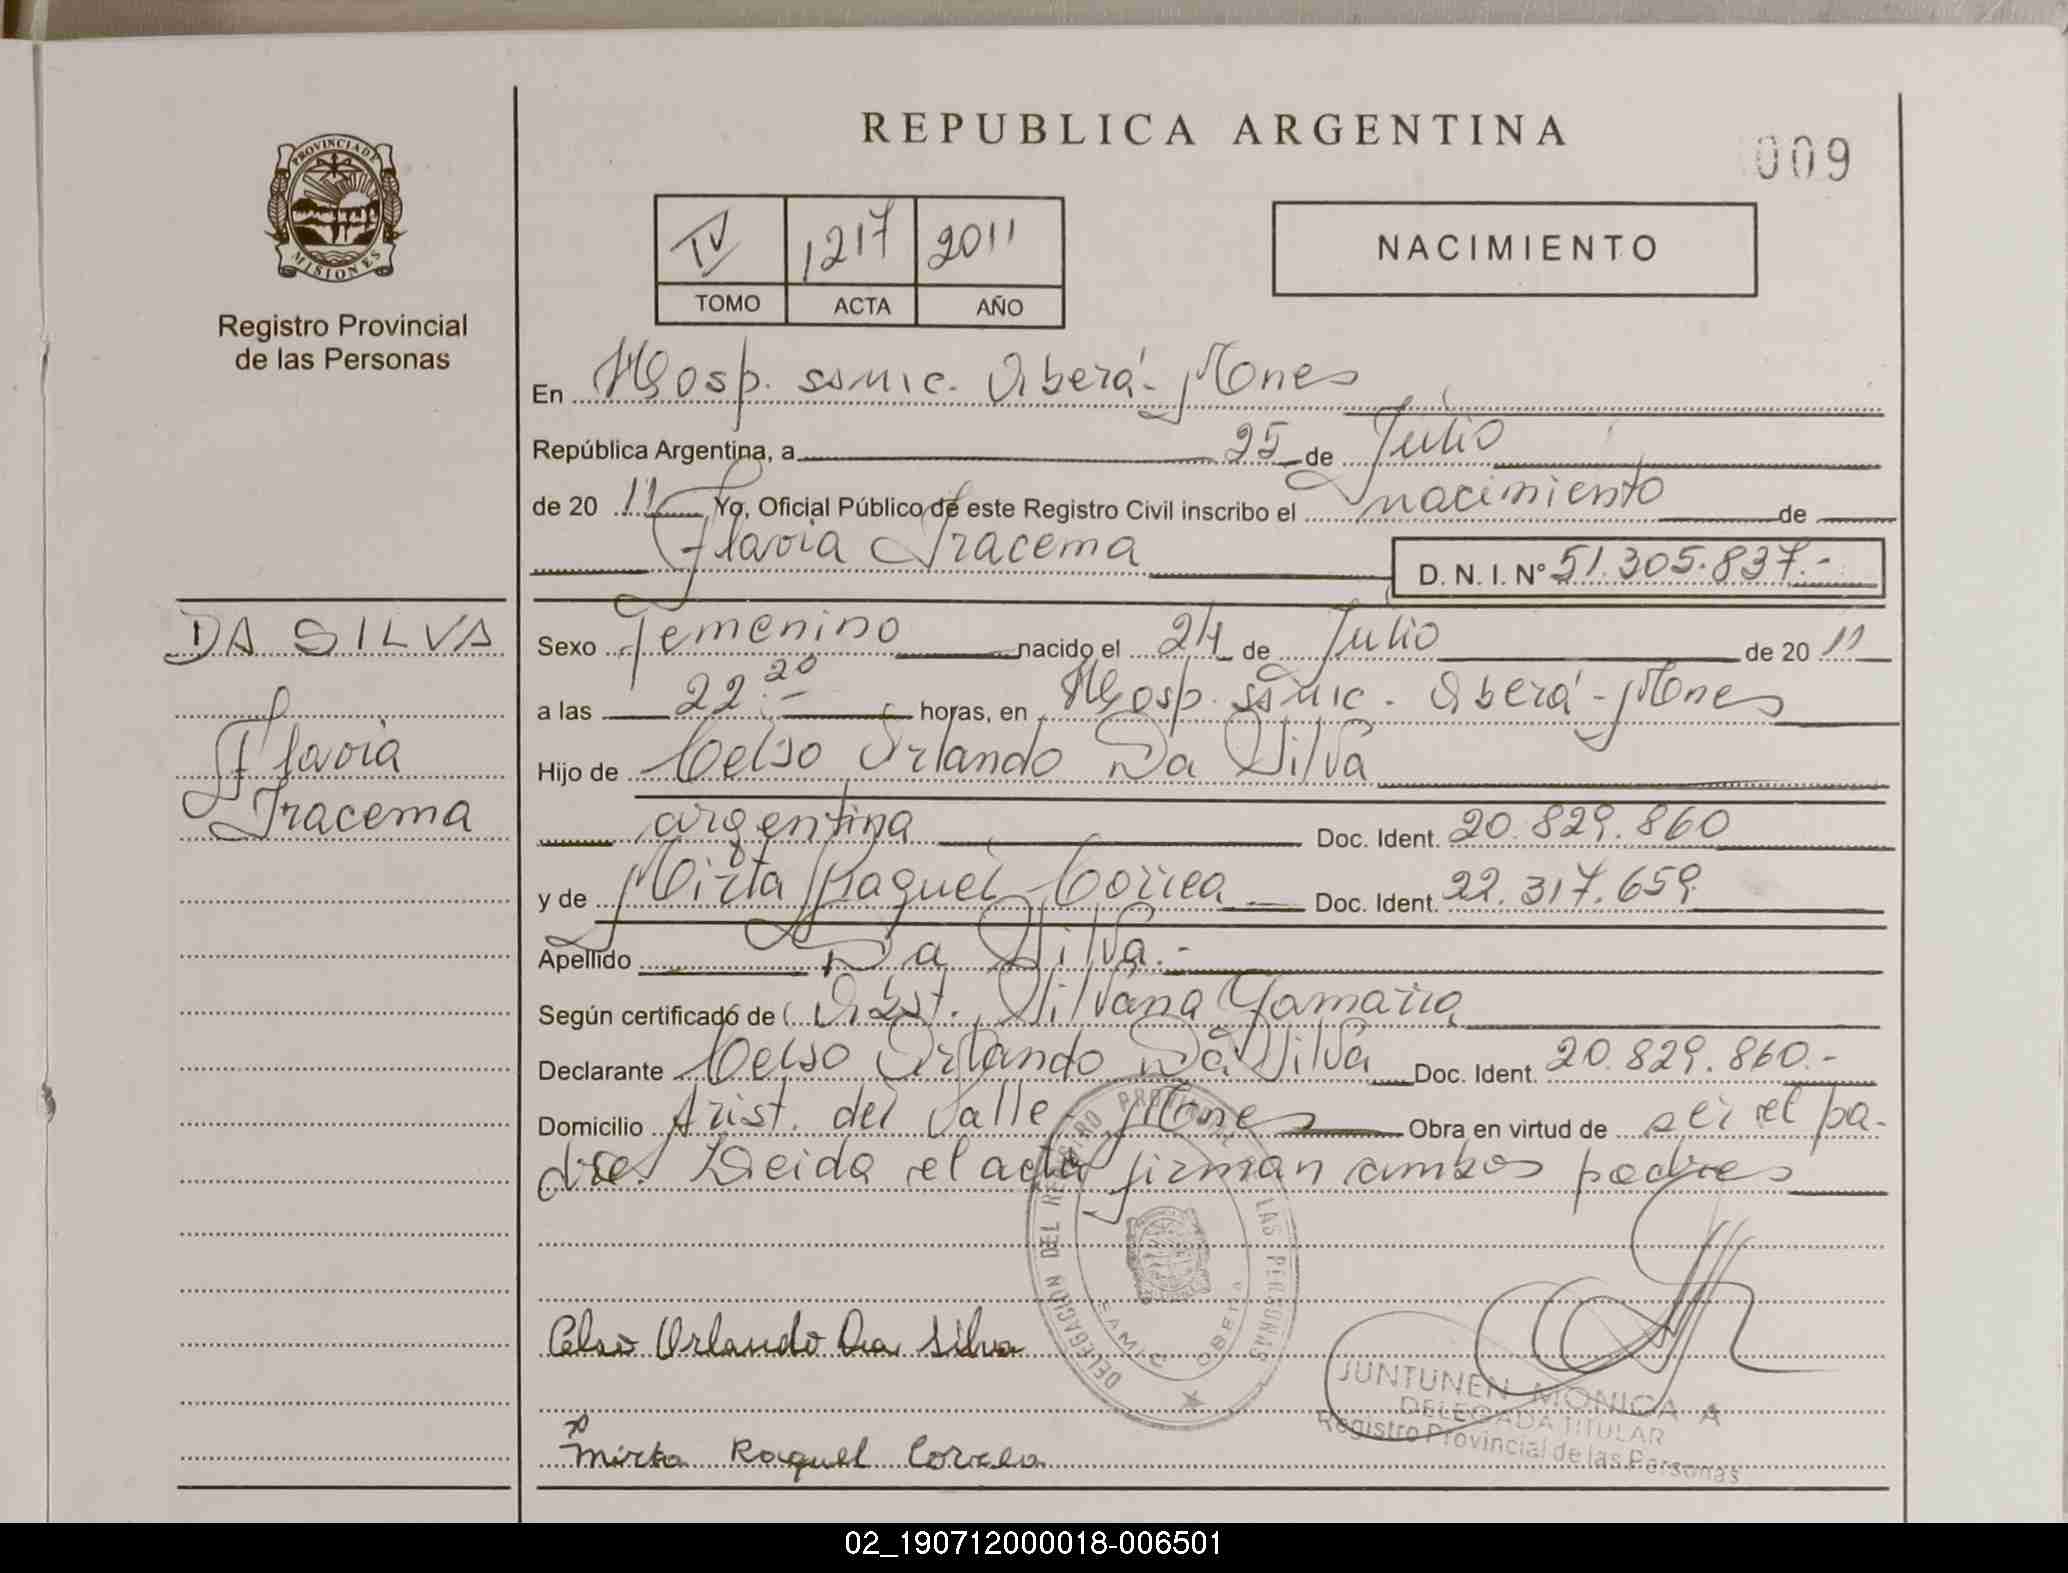 REPUBLICA ARGENTINA
009
PROVINCIA DE MISIONES
Registro Provincial
de las Personas
IV 1217 2011
TOMO ACTA AÑO
NACIMIENTO
En Hosp. SAMIC. Oberá - Mones
República Argentina, a 25 de Julio
de 20 11 Yo, Oficial Público de este Registro Civil inscribo el nacimiento de
Flavia Iracema D. N. I. N° 51.305.837.-
DA SILVA
Flavia
Iracema
Sexo Femenino nacido el 24 de Julio de 20 11
a las 22:20 horas, en Hosp. SAMIC. Oberá - Mones
Hijo de Celso Orlando Da Silva
argentina Doc. Ident. 20.829.860
y de Mirta Raquel Correa Doc. Ident. 22.317.659
Apellido Da Silva.-
Según certificado de Obst. Silvana Yamaira
Declarante Celso Orlando Da Silva Doc. Ident. 20.829.860.-
Domicilio Arist. del Valle - Mones Obra en virtud de ser el pa-
dre. Leida el acta firman ambos padres
DELEGACION DEL REGISTRO PROVINCIAL DE LAS PERSONAS
SAMIC OBERA
Celso Orlando Da Silva
JUNTUNEN MONICA A
DELEGADA TITULAR
Registro Provincial de las Personas
Mirta Raquel Correa
02_190712000018-006501